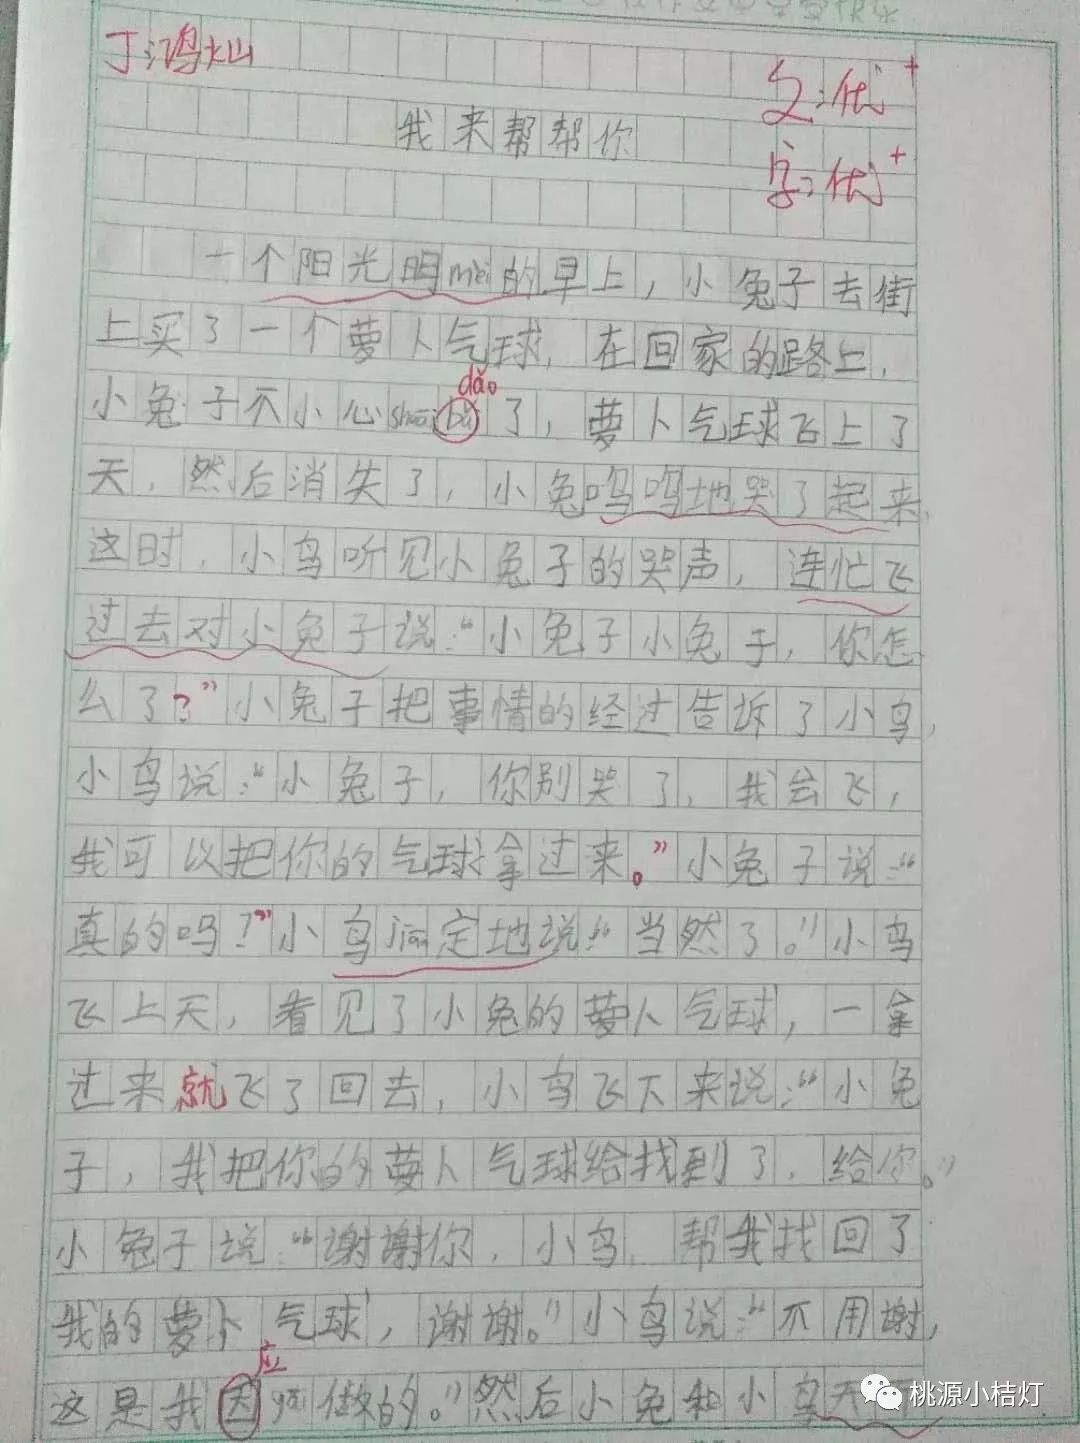 丁鸿灿
文:优+
我来帮帮你
字:优+
一个阳光明mèi的早上，小兔子去街
上买了一个萝卜气球，在回家的路上，
dǎo
小兔子不小心shuāi bù了，萝卜气球飞上了
天，然后消失了，小兔呜呜地哭了起来，
这时，小鸟听见小兔子的哭声，连忙飞
过去对小兔子说：“小兔子小兔子，你怎
么了？”小兔子把事情的经过告诉了小鸟，
小鸟说：“小兔子，你别哭了，我会飞，
我可以把你的气球拿过来。”小兔子说：“
真的吗？”小鸟jiān定地说：“当然了。”小鸟
飞上天，看见了小兔的萝卜气球，一拿
过来就飞了回去，小鸟飞下来说：“小兔
子，我把你的萝卜气球给找到了，给你。”
小兔子说：“谢谢你，小鸟，帮我找回了
我的萝卜气球，谢谢。”小鸟说：“不用谢，
应
这是我因gāi做的。”然后小兔和小鸟天
桃源小桔灯